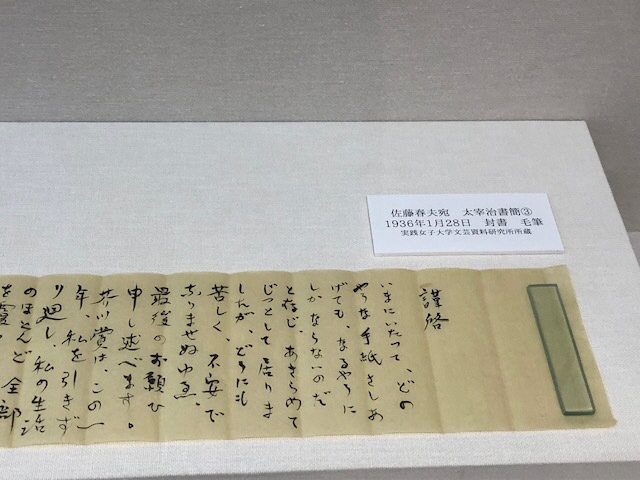 佐藤春夫宛　太宰治書簡③
1936年1月28日　封書　毛筆
実践女子大学文芸資料研究所所蔵
謹啓
いまにいたつて、どの
やうな手紙をしあ
げても、なるやうに
しかならないのだ
と存じ、あきらめて
じつとして居りま
したが、どうにも
苦しく、不安で
なりませぬゆゑ、
最後のお願ひ
申し述べます。
芥川賞は、この一
年、私を引きず
り廻し、私の生活
のほとんど全部
を覆